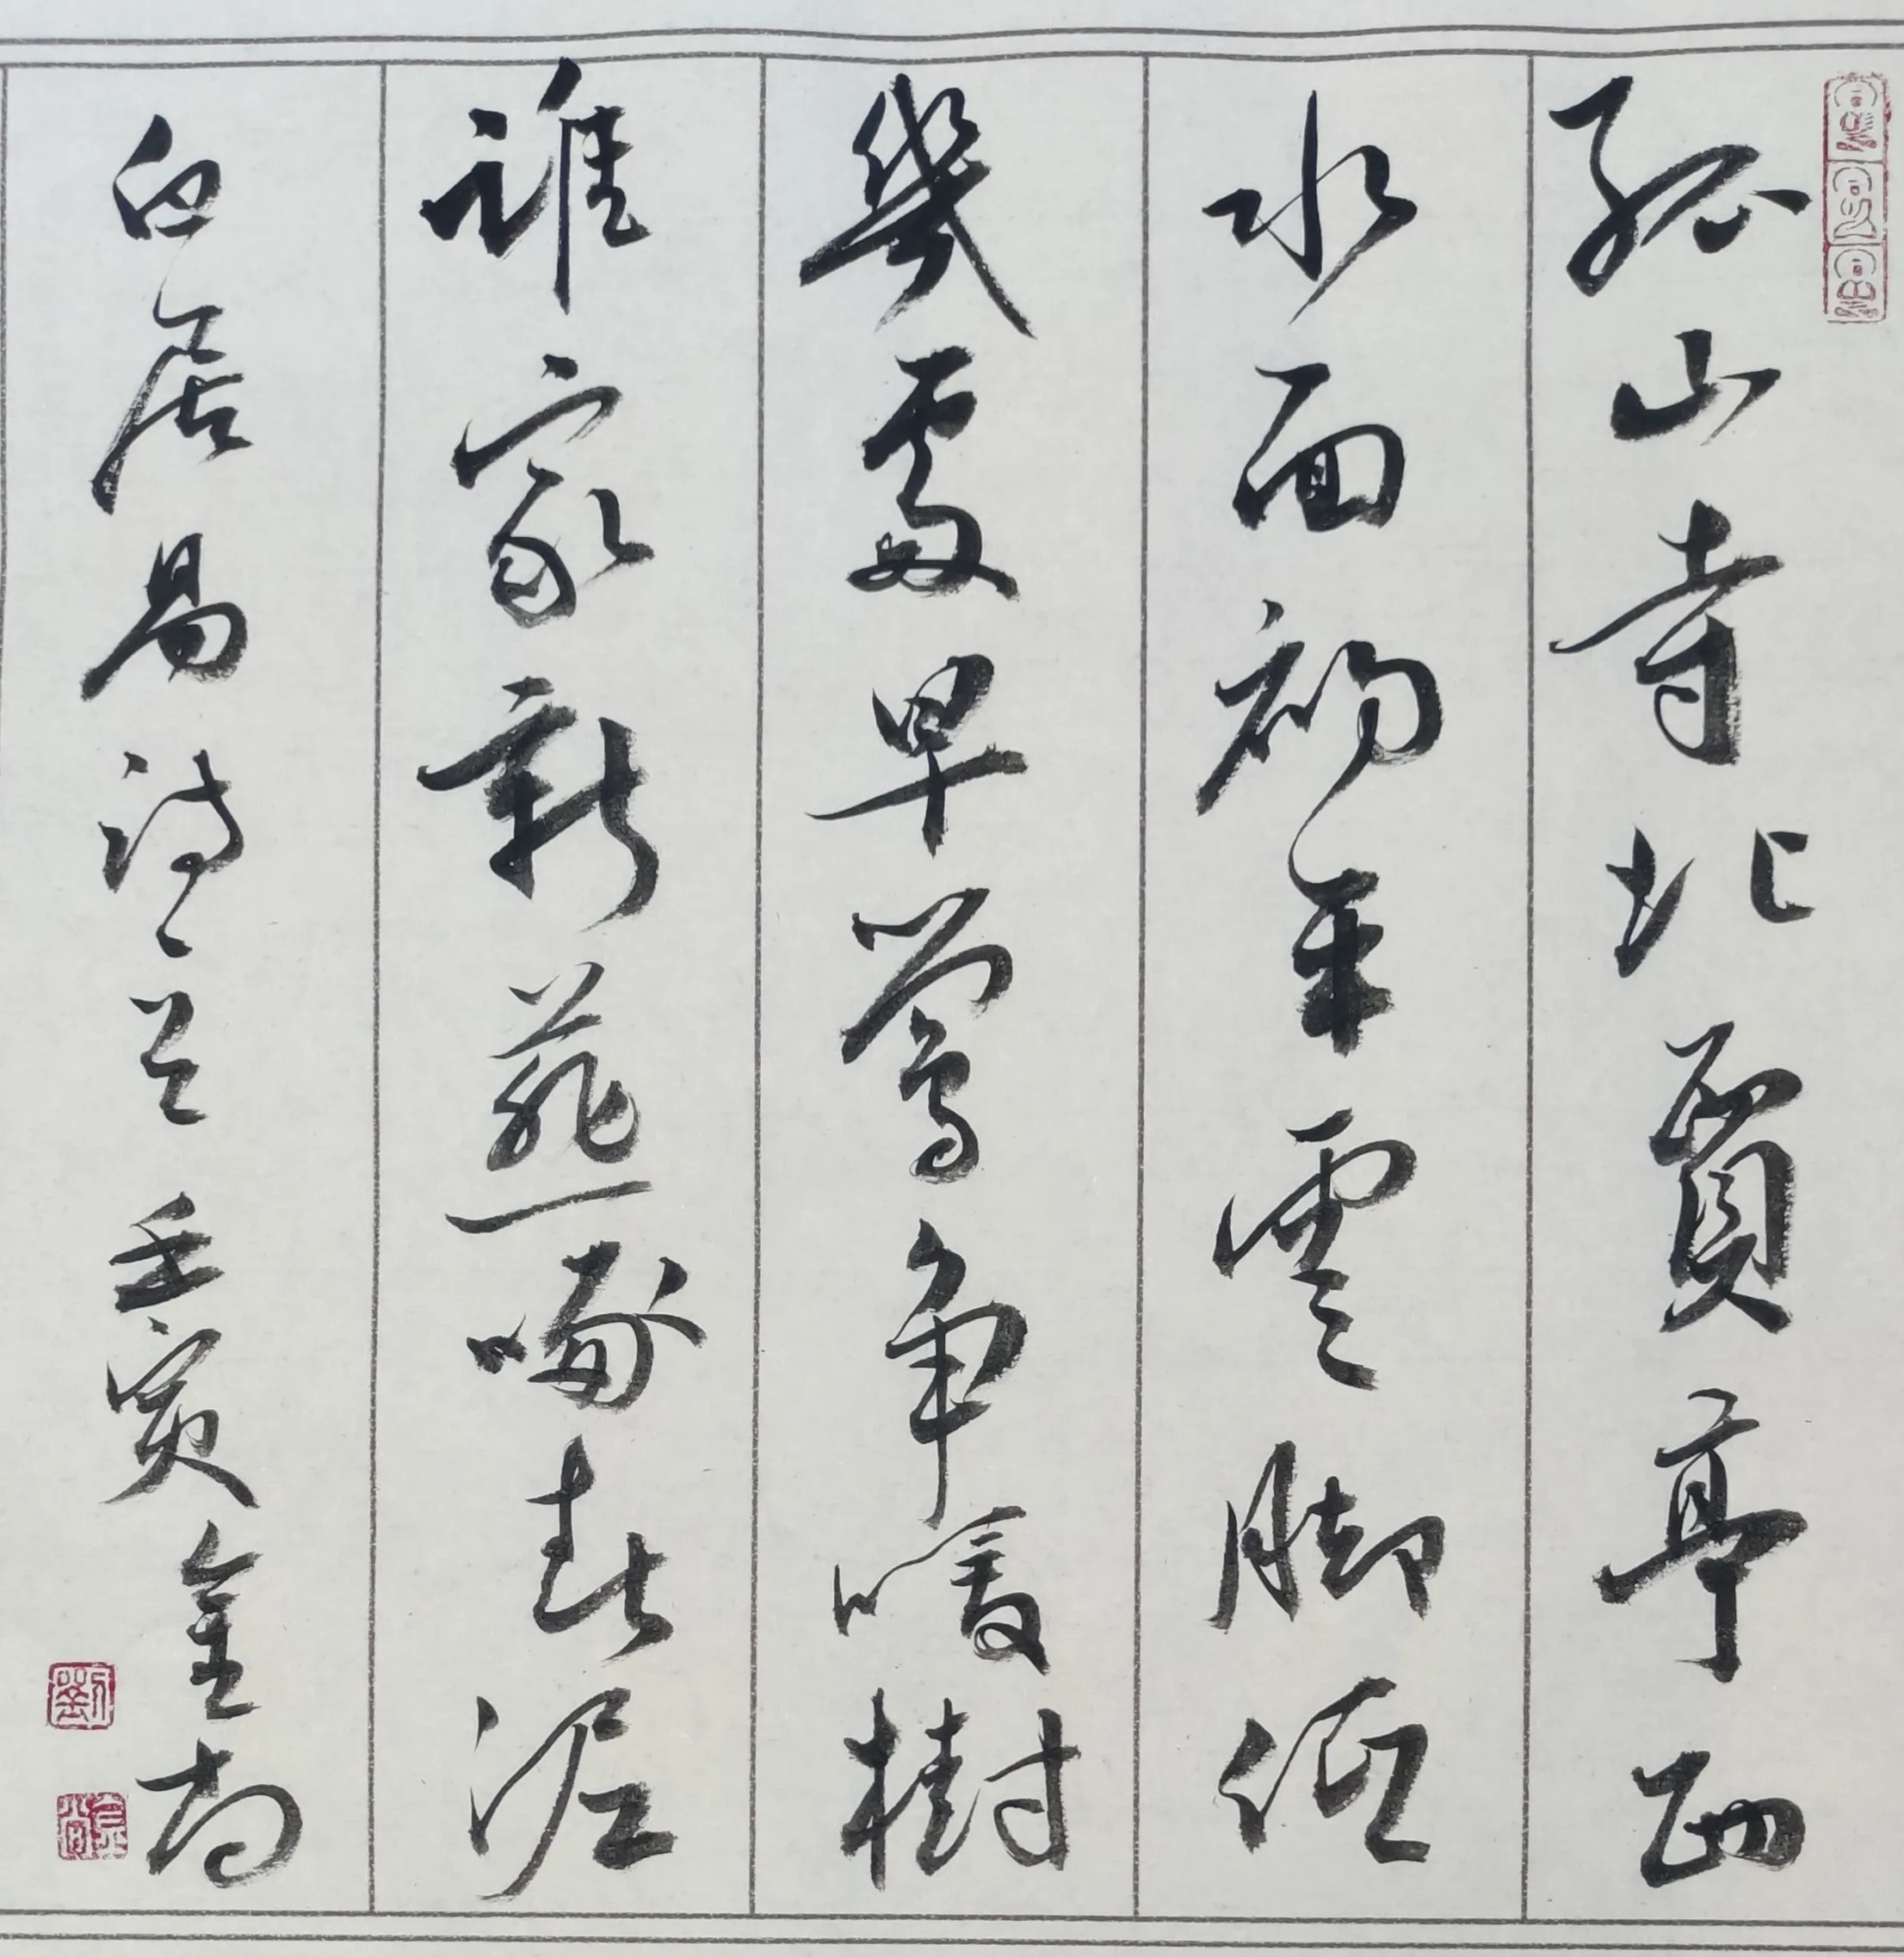 孤山寺北賈亭西
水面初平雲脚低
幾處早鶯争暖樹
誰家新燕啄春泥
白居易詩一首壬寅金尚
劉